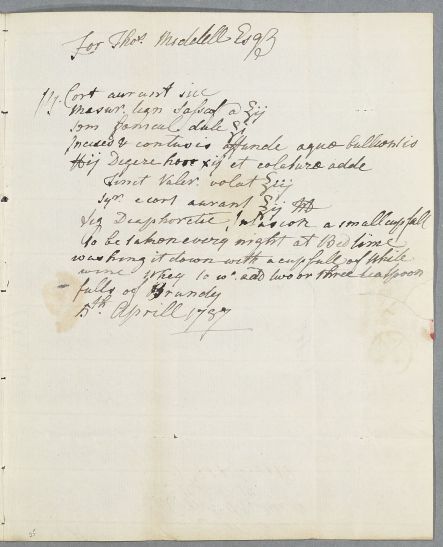 For Thos. Middell Esqr
℞ Cort aurant sicc
Rasur. lign Sassaf a ʒij
Sem foenicul dulc ʒj
Incisis & contusis affunde aquae bullientis
℔ij Digere horas xij et colaturae adde
Tinct Valer. volat ʒij
Syr. e cort aurant ʒij
Sig Diaphoretic a small cupfull
to be taken every night at Bed time
washing it down with a cupfull of White
wine whey to wh. add two or three teaspoon
fulls of Brandy
5th Aprill 1787